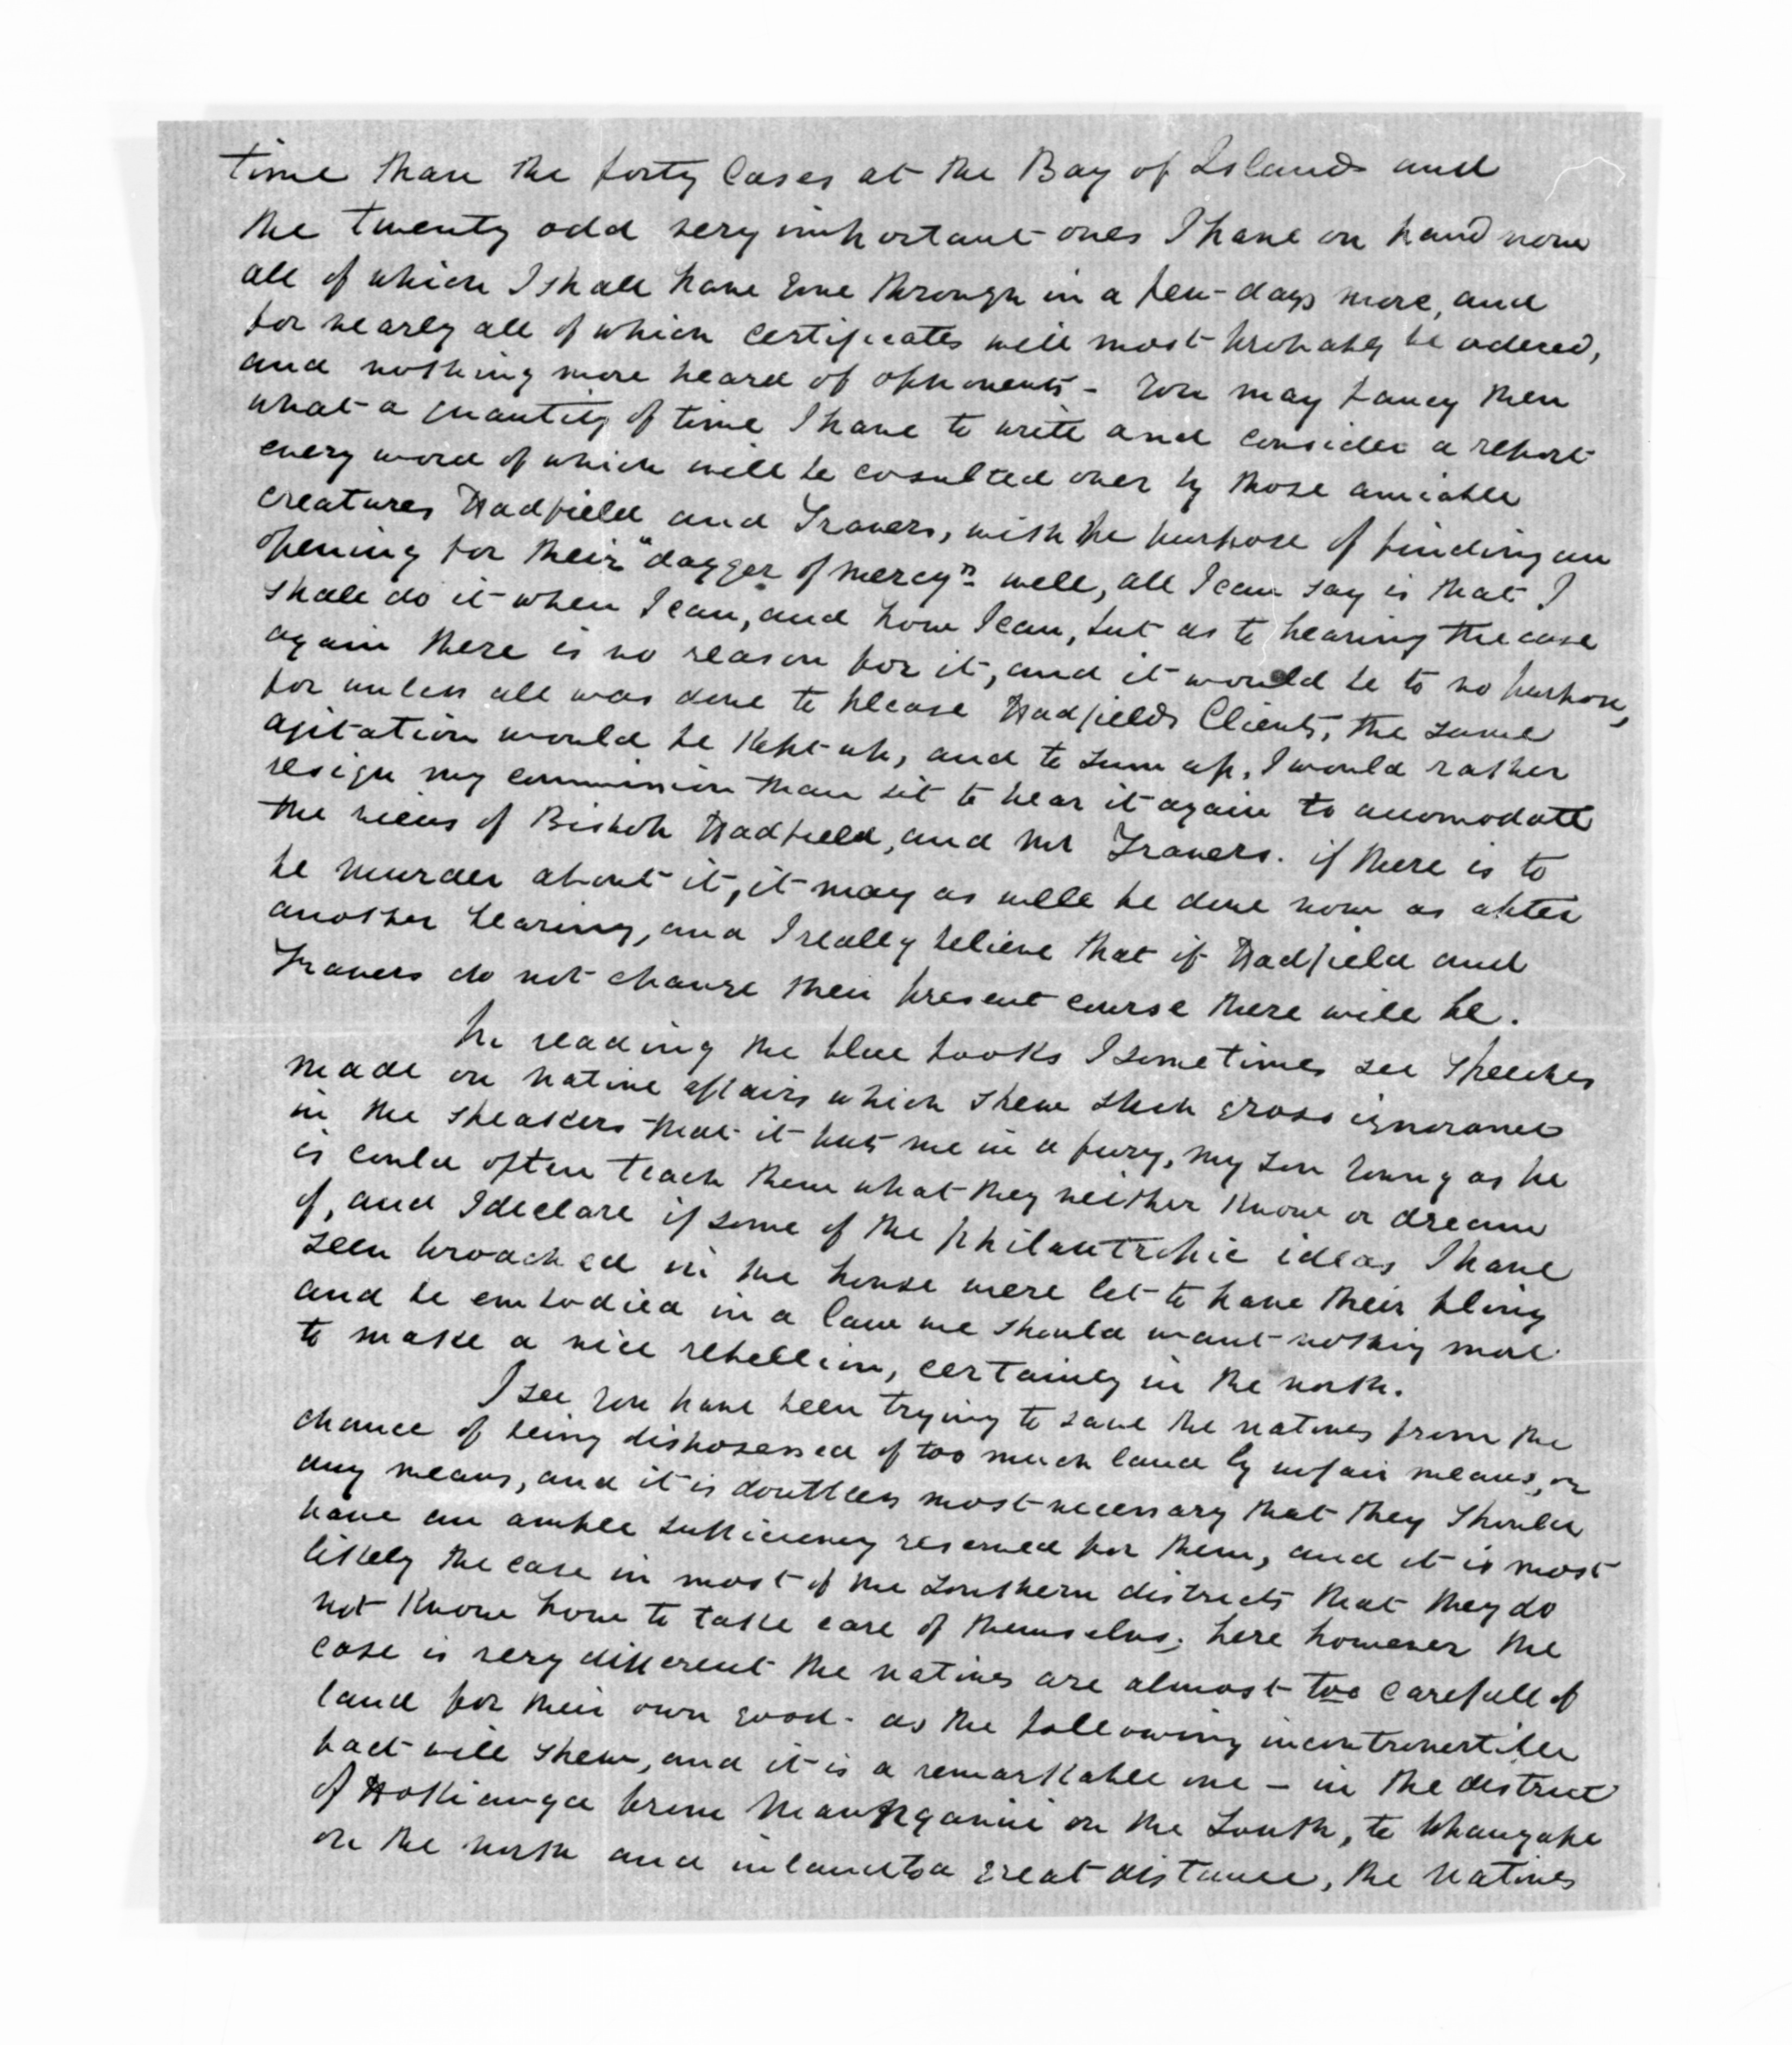 time than the forty Cases at the Bay of Islands and
the twenty odd very important ones I have on hand now
all of which I shall have gone through in a few days more, and
for nearly all of which certificates will most probably be odered,
and nothing more heard of opponents - You may fancy then
what a quantity of time I have to write and consider a report
every word of which will be cosulted over by those amiable
creatures Hadfield and Travers, with the purpose of finding an
opening for their "dagger of mercy" - well, all I can say is that I
shall do it when I can, and how I can, but as to hearing the case
again there is no reason for it, and it would be to no purpose,
for unless all was done to please Hadfields Clients, the same
agitation would be kept up, and to sum up, I would rather
resign my commission than sit to hear it again to acomodate
the views of Bishop Hadfield, and Mr Travers. if there is to
be murder about it, it may as well be done now as after
another hearing, and I really believe that if Hadfield and
Travers do not change their present course there will be.
In reading the blue books I sometimes see speeches
made on native affairs which shew such gross ignorance
in the speakers that it puts me in a fury, my son young as he
is could often teach them what they neither know or dream
of, and I declare if some of the philantrophic ideas I have
seen broached in the house were let to have their fling
and be embodied in a law we should want nothing more
to make a nice rebellion, certainly in the north.
I see you have been trying to save the natives from the
chance of being disposessed of too much land by unfair means, or
any means, and it is doubtless most necessary that they should
have an ample sufficiency reserved for them, and it is most
likely the case in most of the southern districts that they do
not know how to take care of themselves; here however the
case is very different the natives are almost too carefull of
land for their own good - as the following incontrovertible
fact will shew, and it is a remarkable one - in the district
of Hokianga from Maunganui on the South, to Whangape
on the north and inland to a great distance, the natives